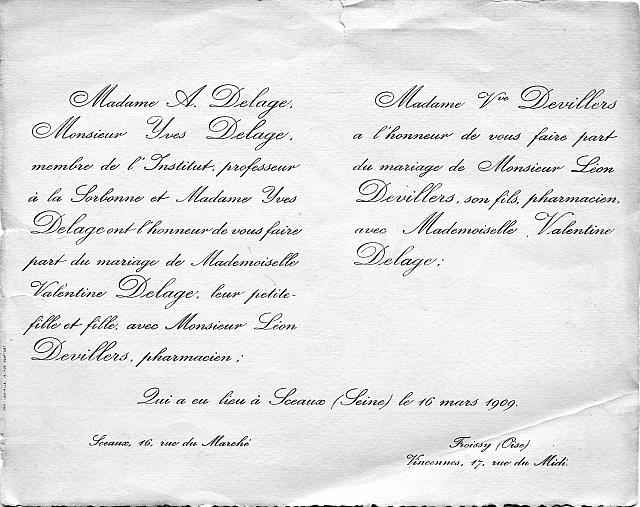 Madame A. Delage,
Monsieur Yves Delage,
membre de l'Institut, professeur
à la Sorbonne et Madame Yves
Delage ont l'honneur de vous faire
part du mariage de Mademoiselle
Valentine Delage, leur petite-
fille et fille, avec Monsieur Léon
Devillers, pharmacien ;
Madame Vve Devillers
a l'honneur de vous faire part
du mariage de Monsieur Léon
Devillers, son fils, pharmacien,
avec Mademoiselle Valentine
Delage ;
Qui a eu lieu à Sceaux (Seine) le 16 mars 1909.
Sceaux, 16, rue du Marché
Froissy (Oise)
Vincennes, 17, rue du Midi.